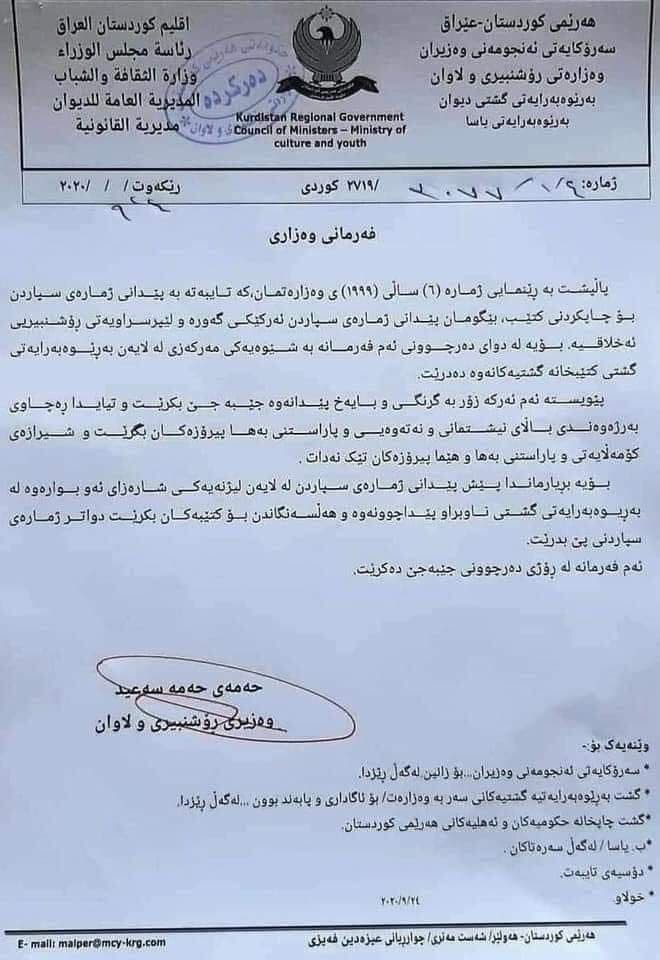 هەرێمی کوردستان-عێراق
سەرۆکایەتی ئەنجومەنی وەزیران
وەزارەتی رۆشنبیری و لاوان
بەرێوەبەرایەتی گشتی دیوان
بەرێوەبەرایەتی یاسا
Kurdistan Regional Government
Council of Ministers – Ministry of
culture and youth
اقليم كوردستان العراق
رئاسة مجلس الوزراء
وزارة الثقافة والشباب
المديرية العامة للديوان
مديرية القانونية
دەرکردە
ژمارە: ١/٩ ٧٠٧٧
٢٧١٩/ کوردی
رێکەوت/ / /٢٠٢٠
٩ ٢٤
فەرمانی وەزاری
پاڵپشت بە ڕێنمایی ژمارە (٦) ساڵی (١٩٩٩) ی وەزارەتمان،کە تایبەتە بە پێدانی ژمارەی سپاردن
بۆ چاپکردنی کتێب، بێگومان پێدانی ژمارەی سپاردن ئەرکێکی گەورە و لێپرسراویەتی رۆشنبیریی
ئەخلاقیە. بۆیە لە دوای دەرچوونی ئەم فەرمانە بە شێوەیەکی مەرکەزی لە لایەن بەڕێوەبەرایەتی
گشتی کتێبخانە گشتیەکانەوە دەدرێت.
پێویستە ئەم ئەرکە زۆر بە گرنگی و بایەخ پێدانەوە جێبە جێ بکرێت و تیایدا ڕەچاوی
بەرژەوەندی باڵای نیشتمانی و نەتەوەیی و پاراستنی بەها پیرۆزەکان بگرێت و شیرازەی
کۆمەڵایەتی و پاراستنی بەها و هێما پیرۆزەکان تێک نەدات .
بۆیە بریارماندا پێش پێدانی ژمارەی سپاردن لە لایەن لیژنەیەکی شارەزای ئەو بوارەوە لە
بەریوەبەرایەتی گشتی ناوبراو پێداچوونەوە و هەڵسەنگاندن بۆ کتێبەکان بکرێت دواتر ژمارەی
سپاردنی پێ بدرێت.
ئەم فەرمانە لە ڕۆژی دەرچوونی جێبەجێ دەکرێت.
حەمەی حەمە سەعید
وەزیری رۆشنبیری و لاوان
وێنەیەک بۆ:-
* سەرۆکایەتی ئەنجومەنی وەزیران...بۆ زانین.لەگەڵ ڕێزدا.
* گشت بەڕێوەبەرایەتیە گشتیەکانی سەر بە وەزارەت/ بۆ ئاگاداری و پابەند بوون ...لەگەڵ ڕێزدا.
*گشت چاپخانە حکومیەکان و ئەهلیەکانی هەرێمی کوردستان.
*ب. یاسا / لەگەڵ سەرەتاکان .
* دۆسیەی تایبەت.
* خولاو.
٢٠٢٠/٩/٢٤
هەرێمی کوردستان- هەولێر/ شەست مەتری/ چوارڕیانی عیزەدین فەیزی
E- mail: malper@mcy-krg.com